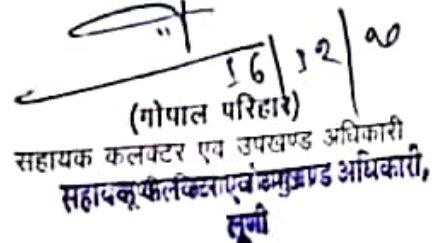 16/12/20
(गोपाल परिहार)
सहायक कलक्टर एव उपखण्ड अधिकारी
सहायक कलक्टर एवं उपखण्ड अधिकारी,
लूणी